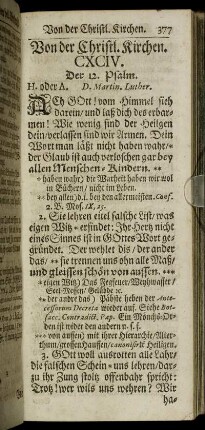 Von der Christl. Kirchen. 377
Von der Christl. Kirchen.
CXCIV.
Der 12. Psalm.
H. oder A. D. Martin. Luther.
Ach GOtt! vom Himmel sieh
darein/ und laß dich des erbar-
men! Wie wenig sind der Heilgen
dein/verlassen sind wir Armen. Dein
Wort man läßt nicht haben wahr/*
der Glaub ist auch verloschen gar bey
allen Menschen-Kindern. **
* haben wahr) die Warheit haben wir wol
in Büchern/ nicht im Leben.
** bey allen) d.i. bey den allermeisten. Conf.
2. B. Mos. IX, 25.
2. Sie lehren eitel falsche List/was
eigen Witz* erfindet: Ihr Hertz nicht
eines Sinnes ist in GOttes Wort ge-
gründet. Der wehlet dis/ der ander
das/** sie trennen uns ohn alle Maß/
und gleissen schön von aussen. ***
* eigen Witz) Das Fegfeuer/ Weyhwasser/
Seel-Messen/ Gelübde ꝛc.
** der ander das) Päbste heben der Ante-
cessorum Decreta wieder auf. Siehe
Ein Mönchs-Or-
den ist wider den andern u. s. f.
*** von aussen) mit ihrer Hierarchie/Alter-
thum/ grossen Hauffen/ canonisirte Heiligen.
3. GOtt woll ausrotten alle Lahr/
die falschen Schein uns lehren/ dar-
zu ihr Zung stoltz offenbahr spricht:
Trotz! wer wils uns wehren? Wir
ha-